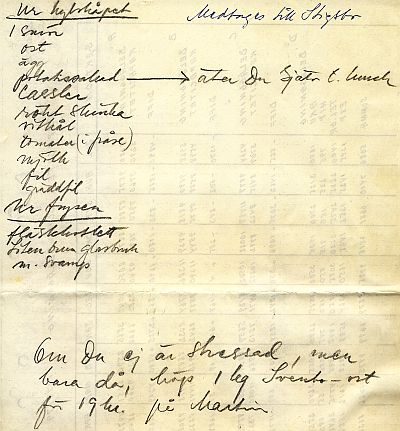 Ur kylskåpet
Medtages till Stigsbo
1 smör
ost
ägg
potatissallad → äter Du själv t. lunch
Cassler
rökt skinka
vitkål
tomater (i påse)
mjölk
fil
gräddfil
Ur frysen
fläskkotlett
Liten brun glasburk
m. svamp
Om Du ej är stressad, men
bara då, köp 1 kg Svecia-ost
för 19 kr. på Martin